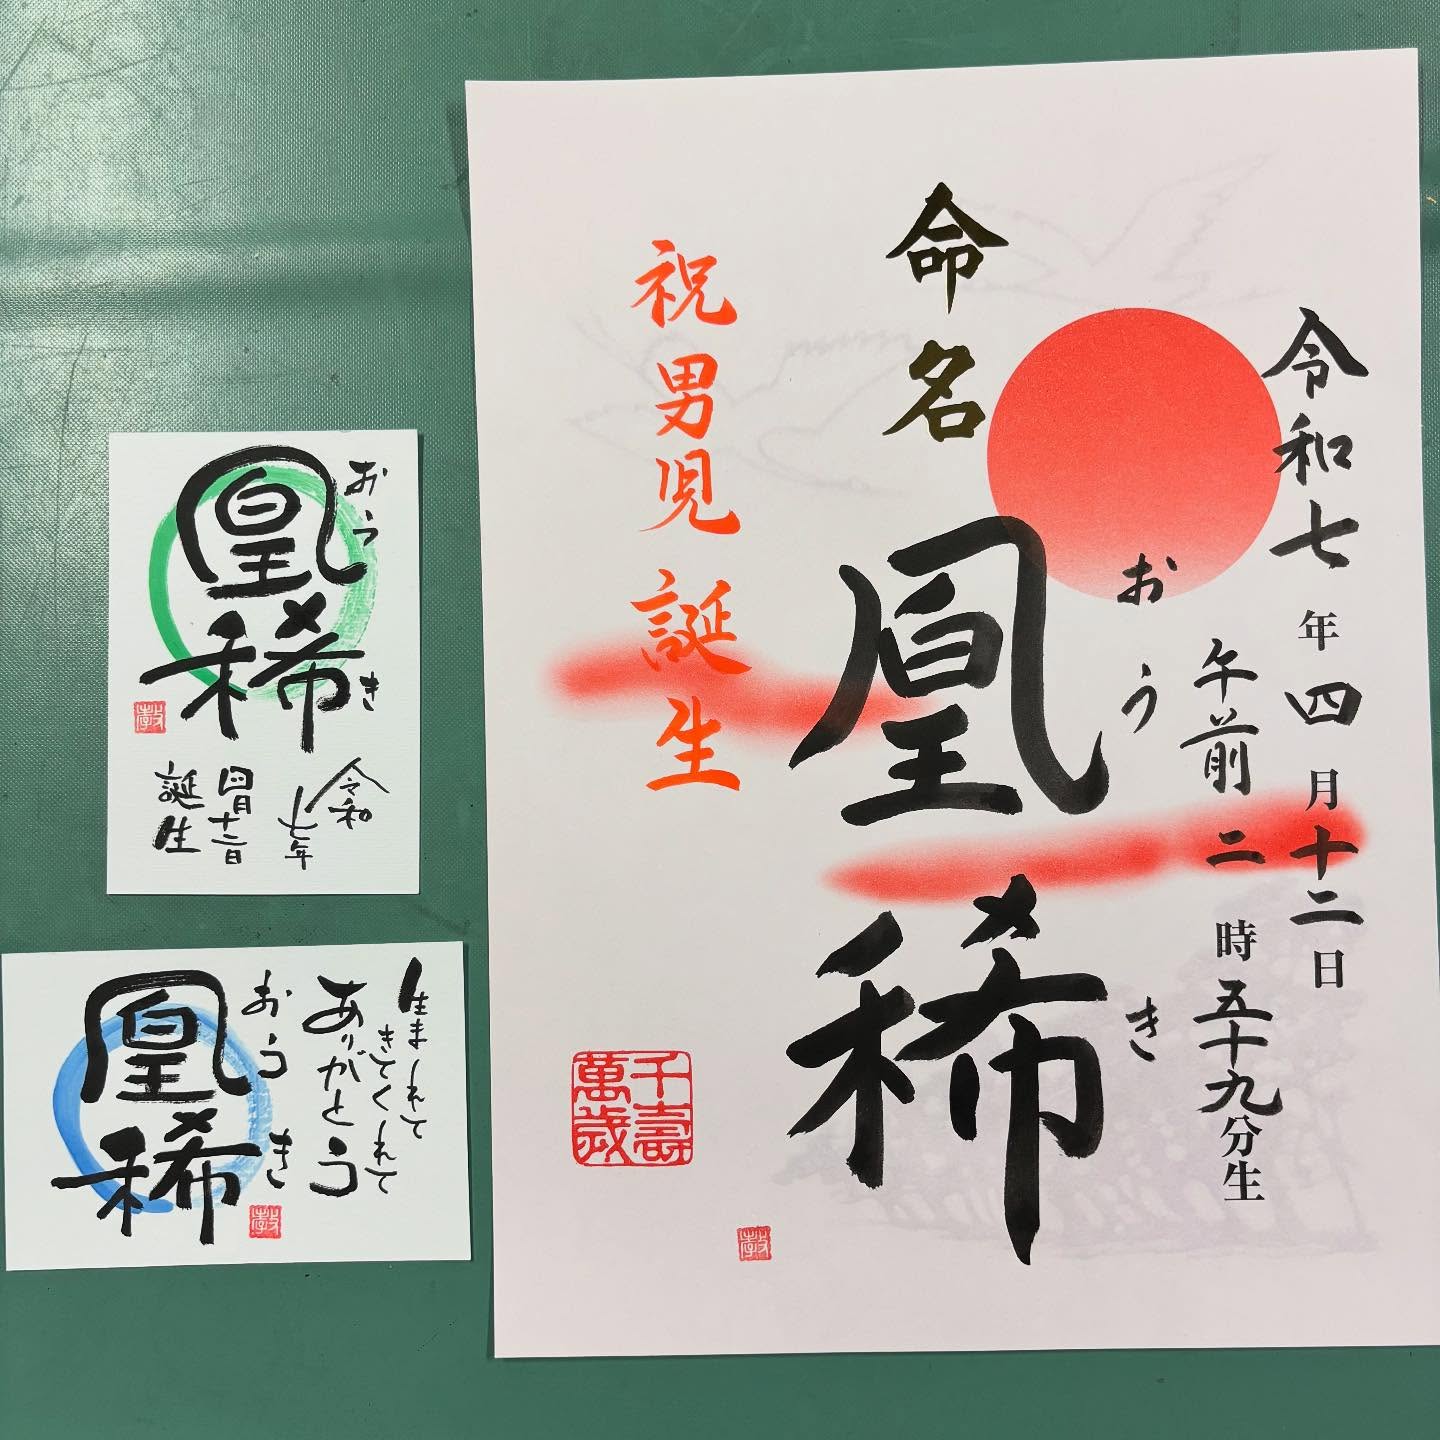 令和七年四月十二日
午前二時五十九分生
おうき
命名
凰稀
祝男児誕生
千壽萬歳
教
凰稀
おうき
令和
七年
四月十二日
誕生
教
生まれて
きてくれて
ありがとう
おうき
凰稀
教